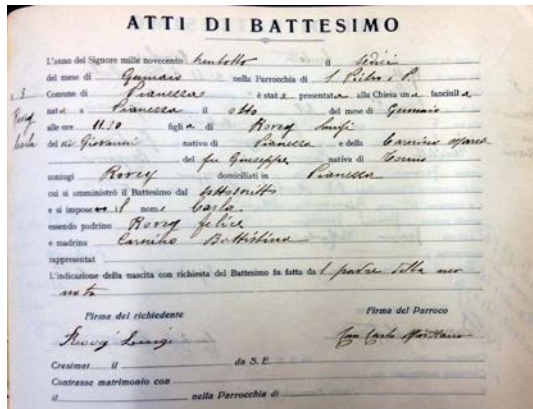 ATTI DI BATTESIMO
L'anno del Signore mille novecento trentotto il sedici
del mese di Gennaio nella Parrocchia di S. Pietro e P.
Comune di Pianezza è stata presentata alla Chiesa una fanciulla
nata a Pianezza il otto del mese di Gennaio
alle ore 11.30 figlia di Luigi
del Giovanni nativo di Pianezza e della
del fu Giuseppe nativa di
coniugi domiciliati in Pianezza
cui si amministrò il Battesimo dal sottoscritto
e si impose il nome Carla
essendo padrino felice
e madrina Battistina
rappresentat
L'indicazione della nascita con richiesta del Battesimo fu fatta da l padre della neo
nata
Firma del richiedente Firma del Parroco
Luigi Carlo
Cresimat il da S. E.
Contrasse matrimonio con
il nella Parrocchia di